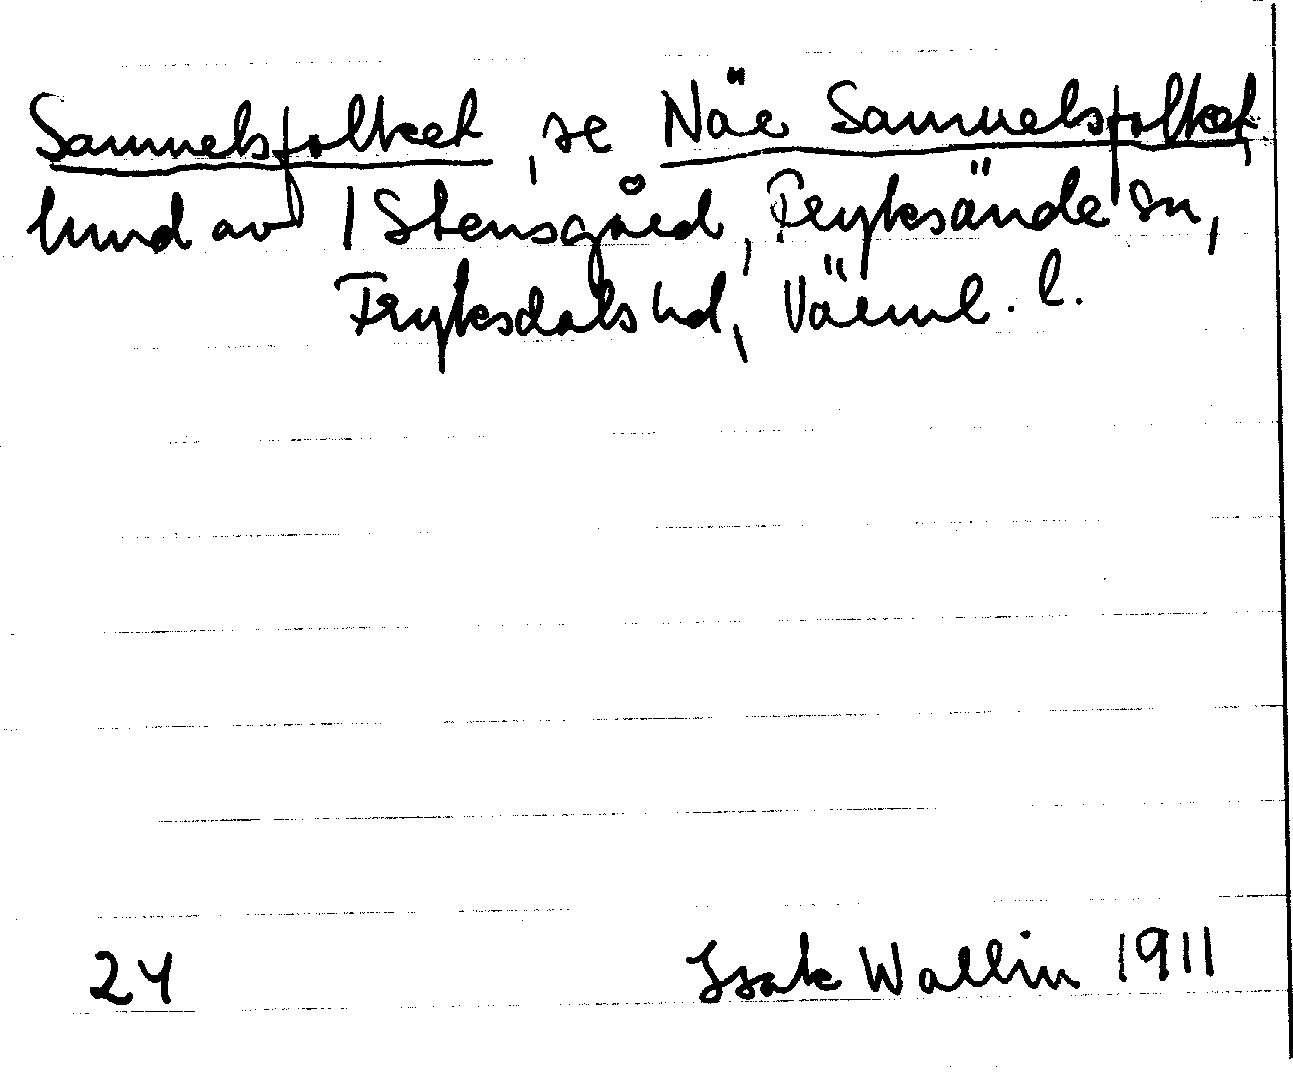 Samuelsfolket, se När Samuelsfolket,
hmd av 1 Stensgård, Fryksände sn,
Fryksdals hd, Värml. l.
24 Isak Wallin 1911